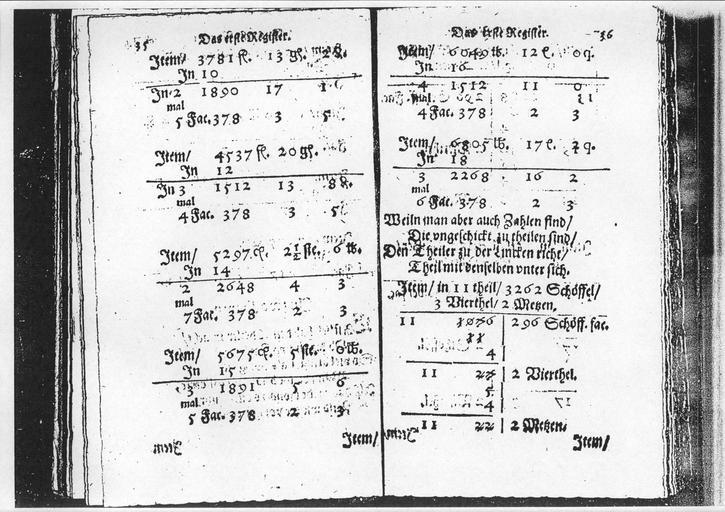 35 Das erste Register.
Item/ 3781 fl. 13 gl. 2 
In 10
In 2 1890 17 1
mal
5 Fac. 378 3 5
Item/ 4537 fl. 20 gl.
In 12
In 3 1512 13 8
mal
4 Fac. 378 3 5
Item/ 5297 2½ ste. 6 lb.
In 14
2 2648 4 3
mal
7 Fac. 378 2 3
Item/ 5675 5 ste. 6 lb.
In 15
3 1891 5 6
mal
5 Fac. 378 2 3
Item/
Das erste Register. 36
Item/ 6049 lb. 12 0 q.
In 16
4 1512 11 0
mal
4 Fac. 378 2 3
Item/ 6805 lb. 17 2 q.
In 18
3 2268 16 2
mal
6 Fac. 378 2 3
Weiln man aber auch Zahlen sind/
Die vngeschickt zu theilen sind/
Den Theiler zu der Lincken richt/
Theil mit denselben vnter sich.
Item/ in 11 theil/ 3262 Schöffel/
3 Vierthel/ 2 Metzen.
11 1076 296 Schöff. fac.
11
4
11 2 Vierthel.
5
4
11 22 2 Metzen.
Item/